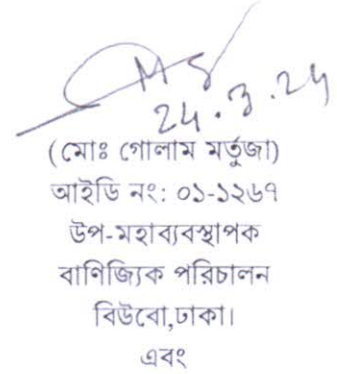 24.3.24
(মোঃ গোলাম মর্তুজা)
আইডি নং: ০১-১২৬৭
উপ-মহাব্যবস্থাপক
বাণিজ্যিক পরিচালন
বিউবো,ঢাকা।
এবং